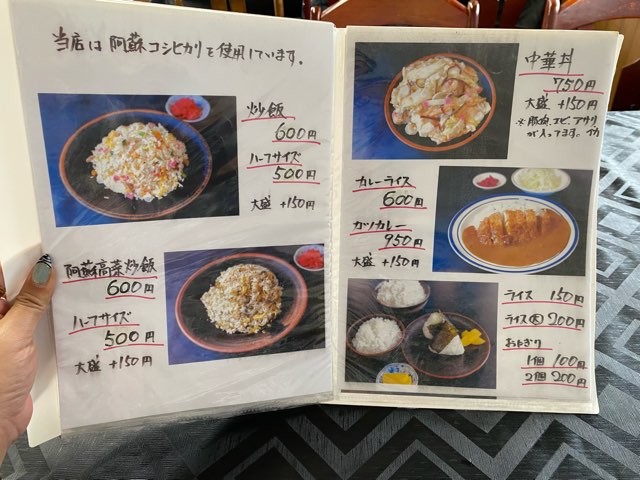 当店は阿蘇コシヒカリを使用しています。
炒飯
600円
ハーフサイズ
500円
大盛 +150円
阿蘇高菜炒飯
600円
ハーフサイズ
500円
大盛 +150円
中華丼
750円
大盛 +150円
※豚肉、エビ、アサリ
が入ってます。イカ
カレーライス
600円
カツカレー
950円
大盛 +150円
ライス 150円
ライス大 200円
おにぎり
1個 100円
2個 200円